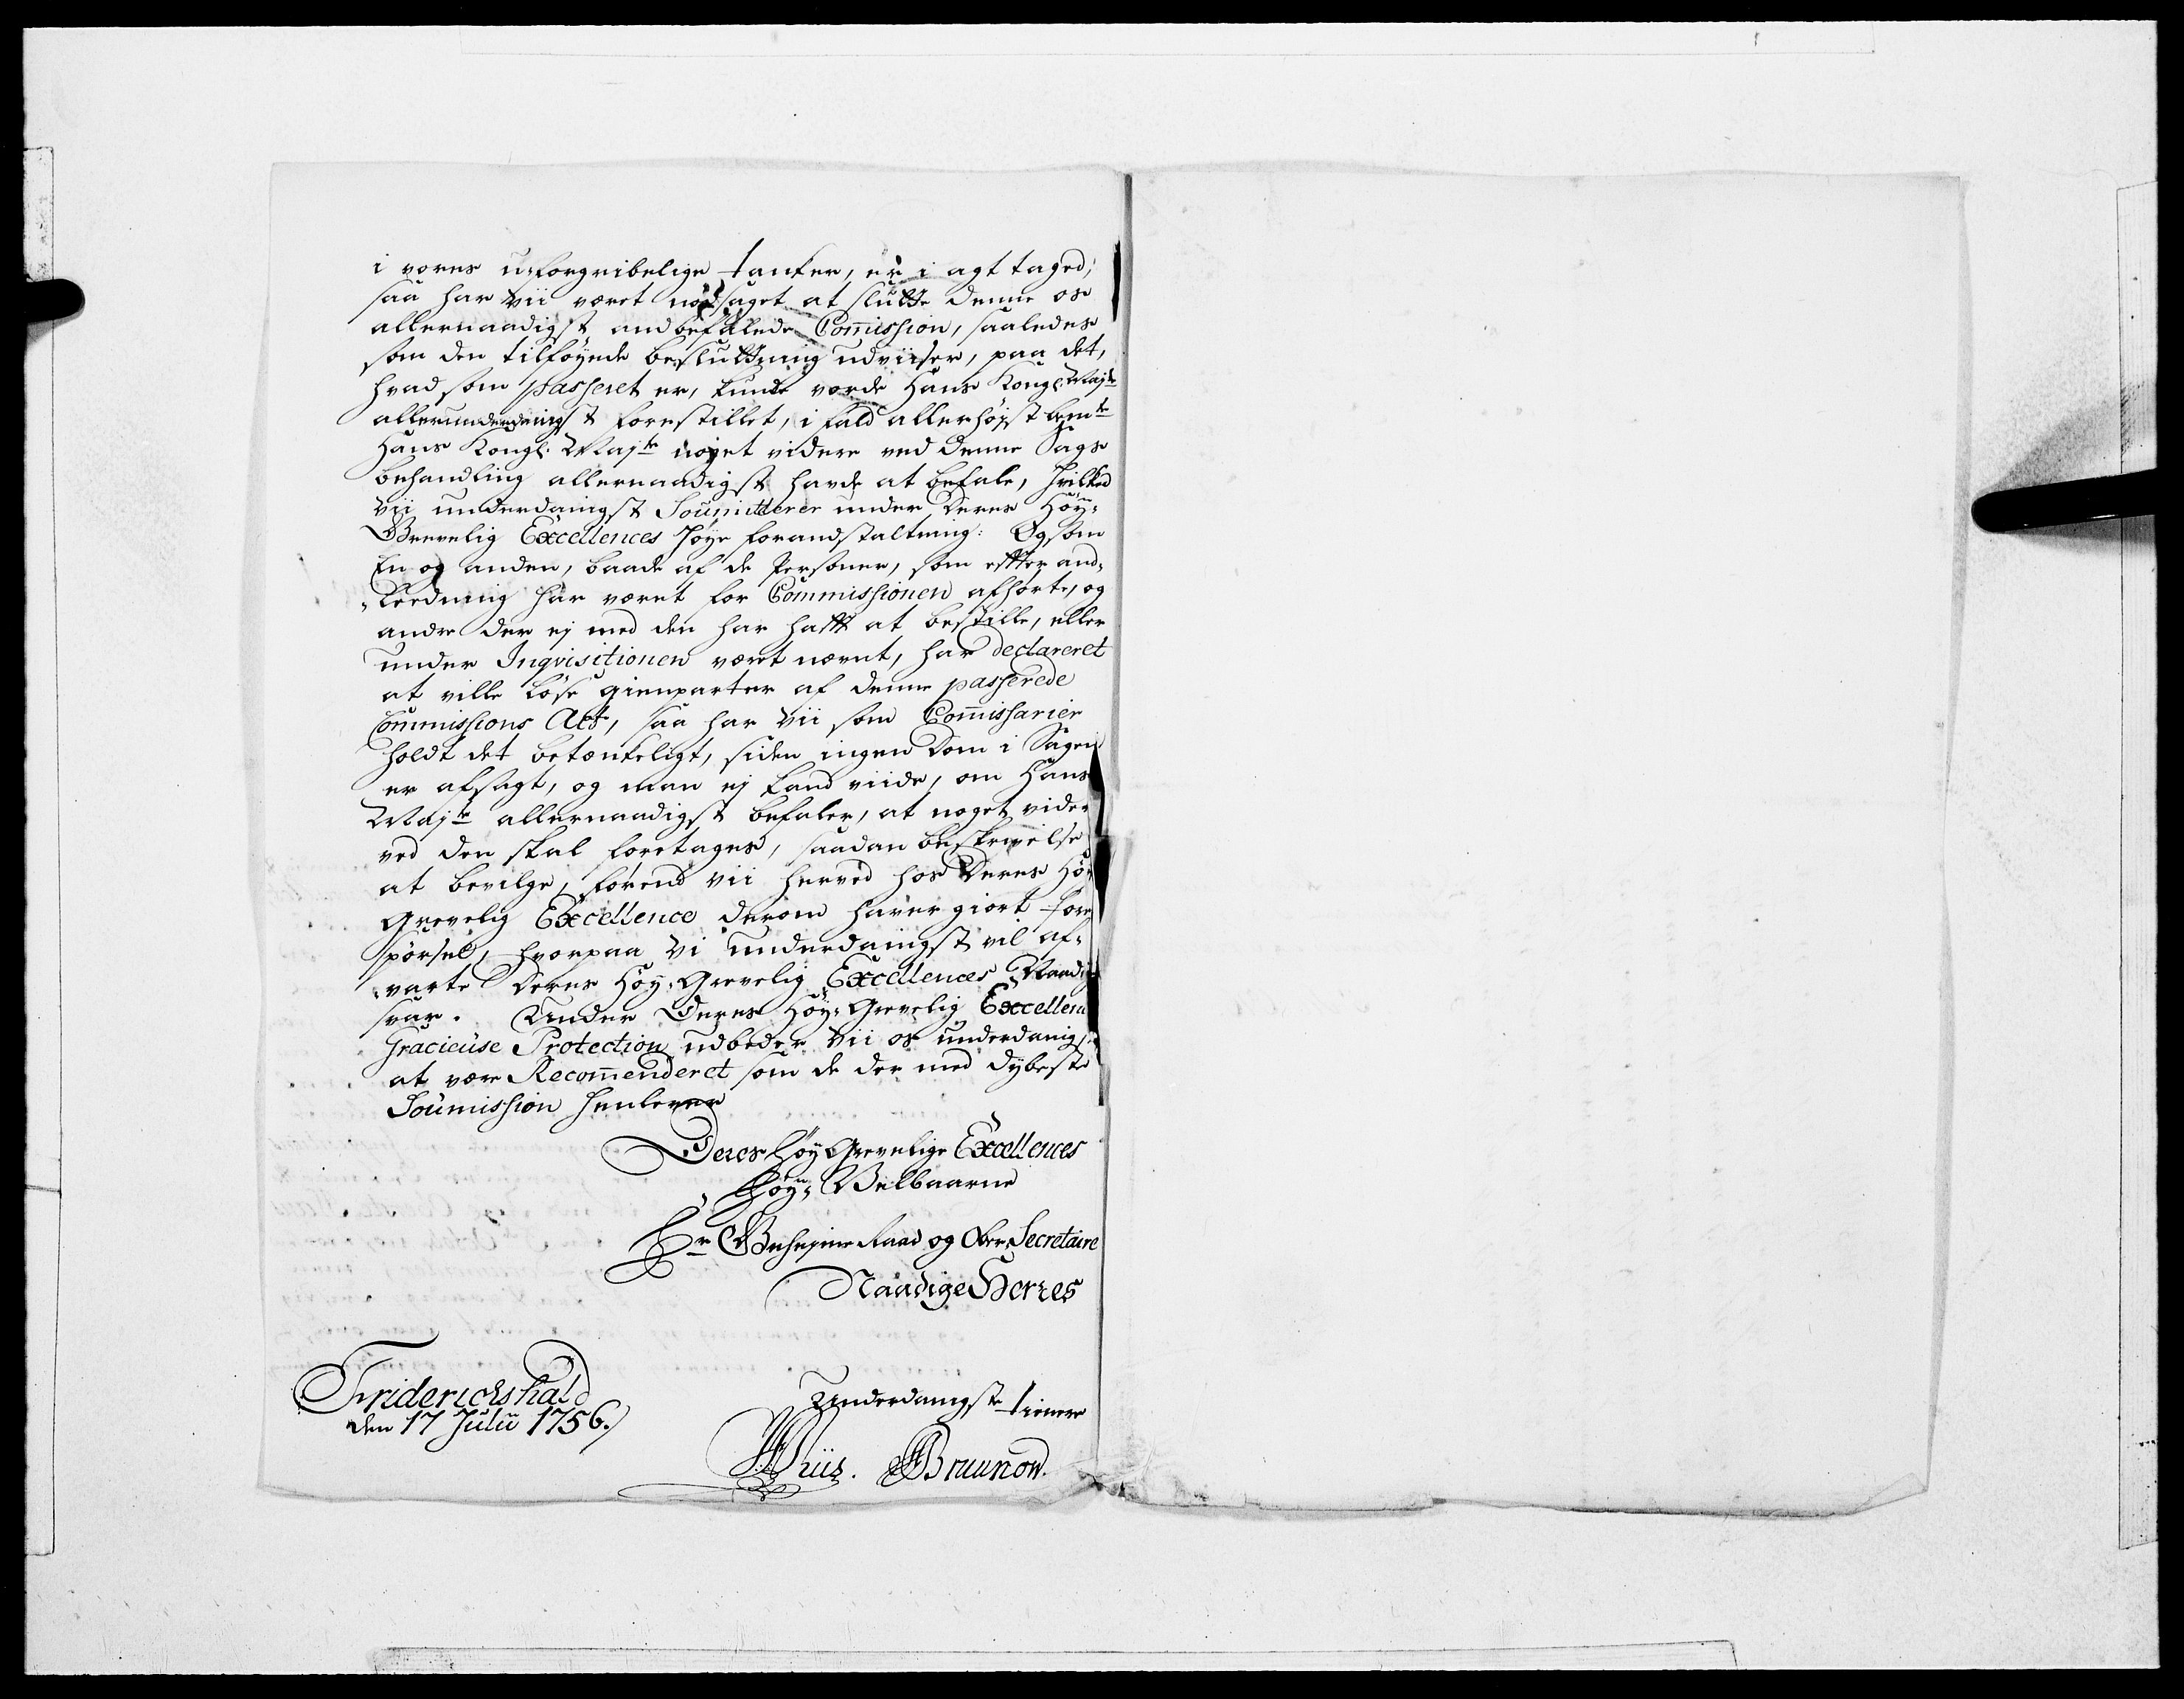 i vores u-forgribelige tanker, er i agt taged;
saa har vii været nødsaget at slutte denne os
allernaadigst andbefalede Com̄ission, saaledes
som den tilføyede besluttning udviiser, paa det,
hvad som passeret er, kunde vorde Hans Kongl: Majte
allerunderdanigst forestillet, i fald allerhøjst bemte
Hans Kongl: Majte noget videre ved denne Sags
behandling allernaadigst havde at befale, hvilket
vii underdanigst Soumitterer under Deres Høy-
Grevelig Excellences høye forandstaltning: Og som
En og anden, baade af de Personer, som effter and-
-Leedning har været for Commissionen afhørte, og
andre der ej med den har hafft at bestille, eller
under Inqvisitionen været nævnt, har declareret
at ville løse gienparter af denne passerede
Commissions Act, saa har vii som Com̄issarier
holdt det betænkeligt, siden ingen Dom i Sagen
er afsagt, og man ej kand viide, om Hans
Majte allernaadigst befaler, at noget vider
ved den skal foretages, saadan beskrivelse
at bevilge, førend vii herved hos Deres Høy
Grevelig Excellence derom haver giort fore
spørsel, hvorpaa vi underdanigst vil af-
-varte Deres Høy-Grevelig Excellences Naadig
svar. Under Deres Høy-Grevelig Excellen
Gracieuse Protection udbeder vii os underdanigst
at være Recom̄enderet som de der med dybeste
Soumission henlever
Deres Høy Grevelige Excellences
Høy- Velbaarne
Hr Geheime Raad og Ober Secretaire
Naadige Herres
Friderichshald
den 17 Julii 1756.
Underdanigste tienere
Wiis. Bruunow.